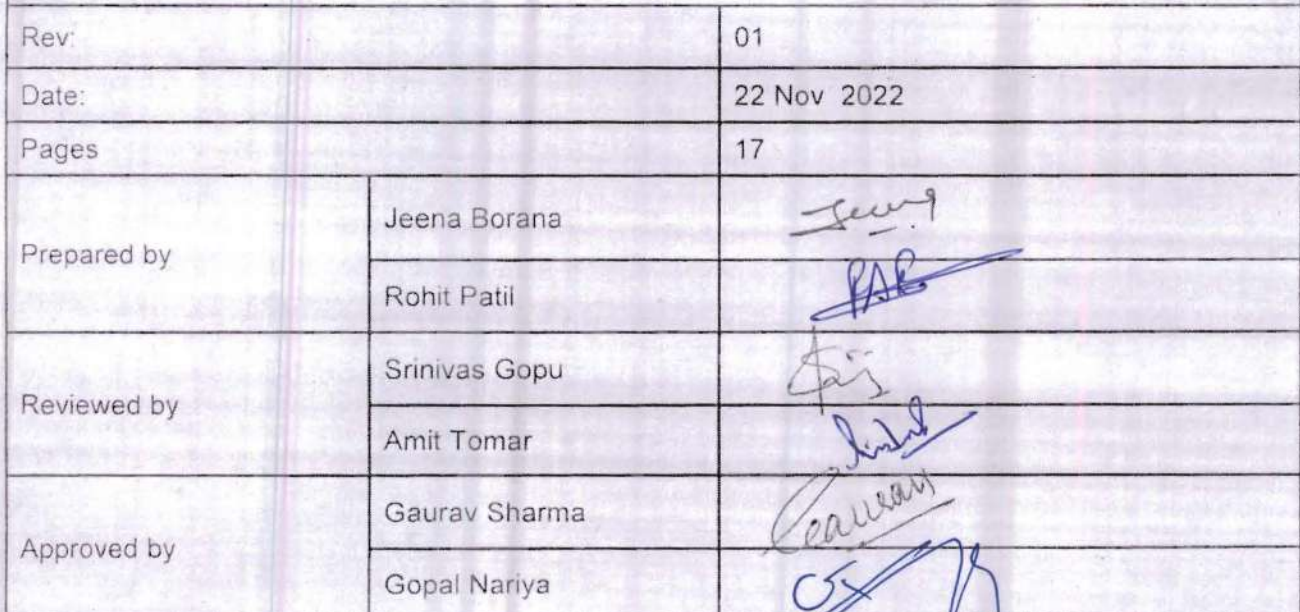 Rev: 01
Date: 22 Nov 2022
Pages 17
Prepared by
Jeena Borana
Rohit Patil
PAR
Reviewed by
Srinivas Gopu
Amit Tomar
Approved by
Gaurav Sharma
Gopal Nariya